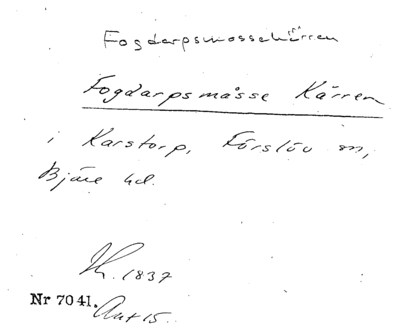 Fogdarpsmossekärren
Fogdarpsmåsse Kärren
i Karstorp, Förslöv sn,
Bjäre hd.
1837
Nr 7041. Akt 15.